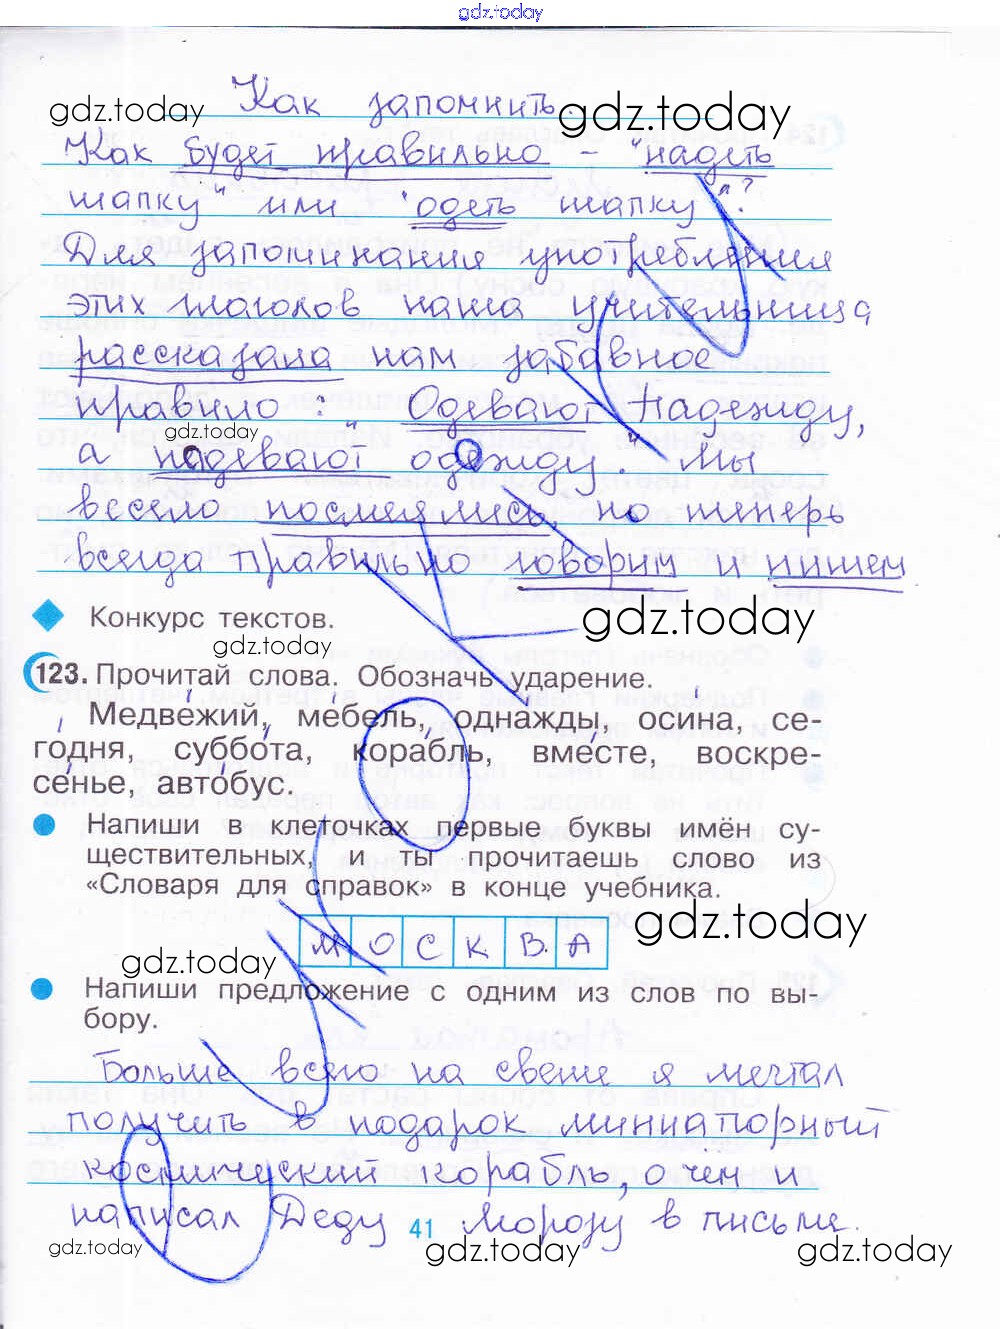 gdz.today
Как запомнить.
gdz.today
gdz.today
Как будет правильно – "надеть
шапку" или "одеть шапку"?
Для запоминания употребления
этих глаголов наша учительница
рассказала нам забавное
правило: "Одевают Надежду,
gdz.today
а надевают одежду." Мы
весело посмеялись, но теперь
всегда правильно говорим и пишем
◆ Конкурс текстов.
gdz.today
gdz.today
123. Прочитай слова. Обозначь ударение.
Медве́жий, ме́бель, одна́жды, оси́на, се-
го́дня, суббо́та, кора́бль, вме́сте, воскре-
се́нье, авто́бус.
● Напиши в клеточках первые буквы имён су-
ществительных, и ты прочитаешь слово из
«Словаря для справок» в конце учебника.
gdz.today
М О С К В А
gdz.today
● Напиши предложение с одним из слов по вы-
бору.
Больше всего на свете я мечтал
получить в подарок миниатюрный
космический корабль, о чём и
написал Деду Морозу в письме.
41
gdz.today
gdz.today
gdz.today